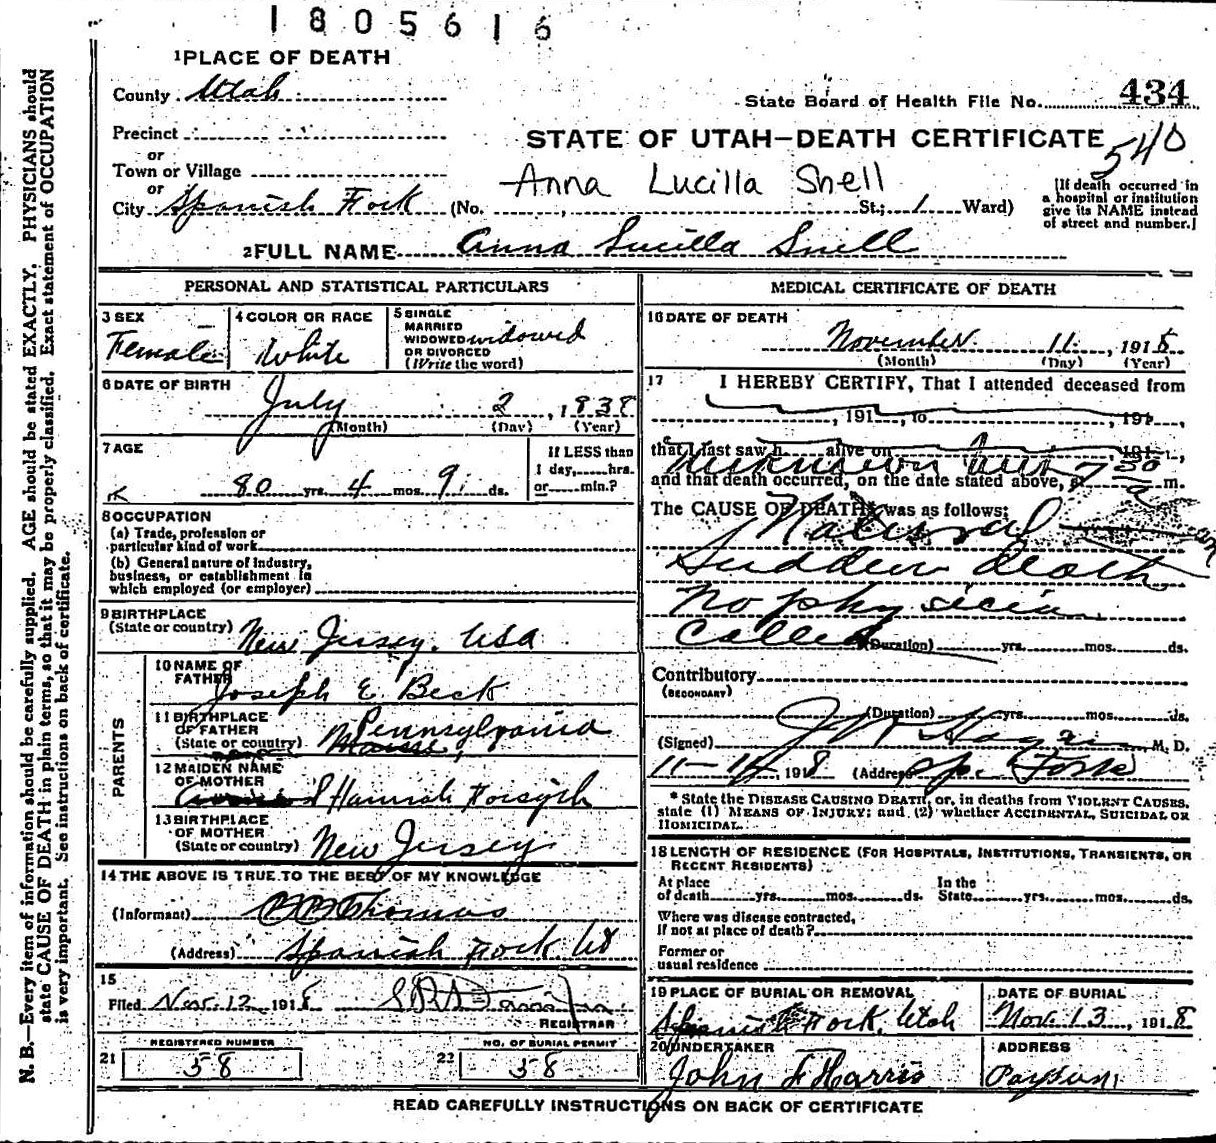 1805616
1 PLACE OF DEATH
County Utah
State Board of Health File No. 434
Precinct
STATE OF UTAH—DEATH CERTIFICATE
540
or
Town or Village
or
Anna Lucilla Snell
City Spanish Fork (No. , St.; 1 Ward)
[If death occurred in
a hospital or institution
give its NAME instead
of street and number.]
2 FULL NAME Anna Lucilla Snell
PERSONAL AND STATISTICAL PARTICULARS
3 SEX
Female
4 COLOR OR RACE
White
5 SINGLE
MARRIED
WIDOWED widowed
OR DIVORCED
(Write the word)
6 DATE OF BIRTH
July 2, 1838
(Month) (Day) (Year)
7 AGE
80 yrs. 4 mos. 9 ds.
If LESS than
1 day, hrs.
or min.?
8 OCCUPATION
(a) Trade, profession or
particular kind of work
(b) General nature of industry,
business, or establishment in
which employed (or employer)
9 BIRTHPLACE
(State or country) New Jersey, USA
PARENTS
10 NAME OF
FATHER Joseph E. Beck
11 BIRTHPLACE
OF FATHER
(State or country) Pennsylvania
12 MAIDEN NAME
OF MOTHER
Hannah Forsyth
13 BIRTHPLACE
OF MOTHER
(State or country) New Jersey
14 THE ABOVE IS TRUE TO THE BEST OF MY KNOWLEDGE
(Informant) Thomas
(Address) Spanish Fork Ut
15
Filed Nov. 12 1918
REGISTRAR
21 REGISTERED NUMBER
58
22 NO. OF BURIAL PERMIT
58
MEDICAL CERTIFICATE OF DEATH
16 DATE OF DEATH
November 11, 1918
(Month) (Day) (Year)
17 I HEREBY CERTIFY, That I attended deceased from
, 191 , to , 191 ,
that I last saw h alive on , 191 ,
and that death occurred, on the date stated above, at 7 30 a m.
The CAUSE OF DEATH* was as follows:
Natural
Sudden death
no physician
called (Duration) yrs. mos. ds.
Contributory
(SECONDARY)
(Duration) yrs. mos. ds.
(Signed) M. D.
1918 (Address) Sp. Fork
* State the DISEASE CAUSING DEATH, or, in deaths from VIOLENT CAUSES,
state (1) MEANS OF INJURY; and (2) whether ACCIDENTAL, SUICIDAL OR
HOMICIDAL.
18 LENGTH OF RESIDENCE (FOR HOSPITALS, INSTITUTIONS, TRANSIENTS, OR
RECENT RESIDENTS)
At place In the
of death yrs. mos. ds. State yrs. mos. ds.
Where was disease contracted,
If not at place of death?
Former or
usual residence
19 PLACE OF BURIAL OR REMOVAL
Spanish Fork, Utah
DATE OF BURIAL
Nov. 13, 1918
20 UNDERTAKER
John F Harris
ADDRESS
Payson
READ CAREFULLY INSTRUCTIONS ON BACK OF CERTIFICATE
N. B.—Every item of information should be carefully supplied. AGE should be stated EXACTLY. PHYSICIANS should
state CAUSE OF DEATH in plain terms, so that it may be properly classified. Exact statement of OCCUPATION
is very important. See instructions on back of certificate.